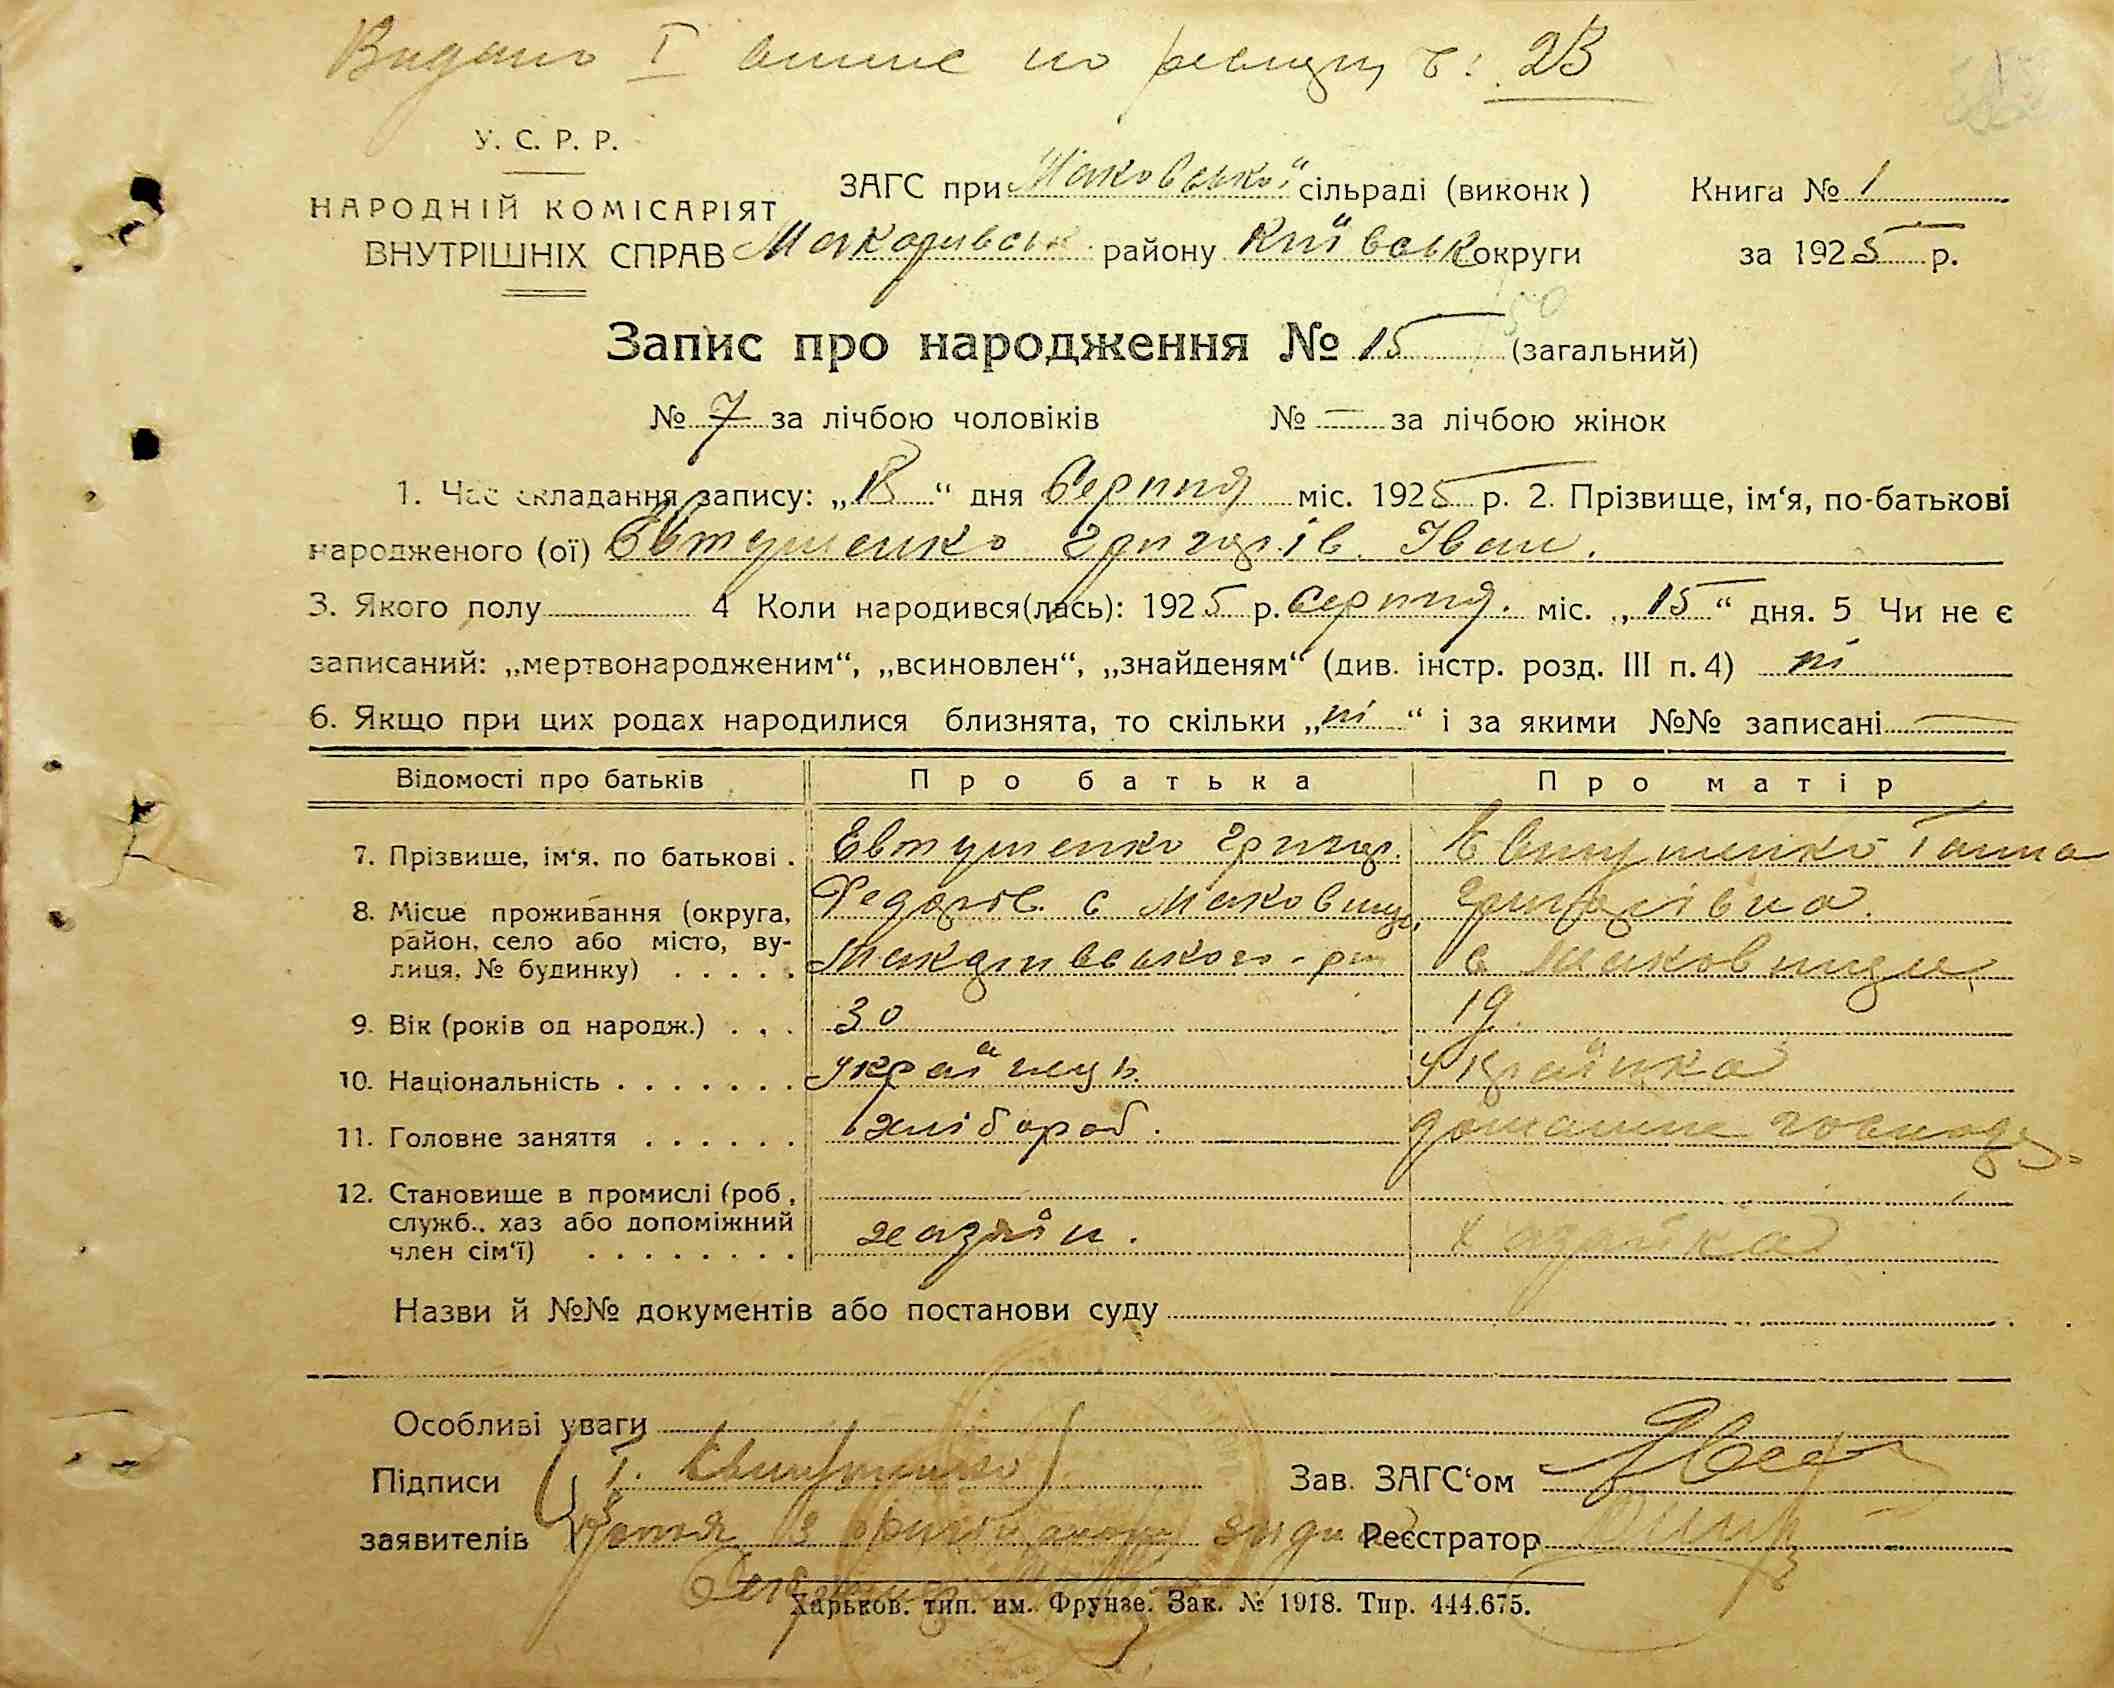 Видано I випис по реєстру ч: 23
У. С. Р. Р.
НАРОДНІЙ КОМІСАРІЯТ
ВНУТРІШНІХ СПРАВ
ЗАГС при Маковської сільраді (виконк)
Макарівськ району Київськ округи
Книга № 1
за 1925 р.
Запис про народження № 15 (загальний)
50
№ 7 за лічбою чоловіків № — за лічбою жінок
1. Час складання запису: „18“ дня Серпня міс. 1925 р. 2. Прізвище, ім‘я, по-батькові
народженого (ої) Євтушенко Григорів. Іван.
3. Якого полу 4 Коли народився(лась): 1925 р. Серпня. міс. „15“ дня. 5 Чи не є
записаний: „мертвонародженим“, „всиновлен“, „знайденям“ (див. інстр. розд. III п. 4) ні
6. Якщо при цих родах народилися близнята, то скільки „ні“ і за якими №№ записані —
Відомості про батьків Про батька Про матір
7. Прізвише, ім‘я, по батькові . Євтушенко Григор. Євтушенко Ганна
8. Місце проживання (округа, Федорів. с Маковищ, Григорівна.
район, село або місто, ву-
лиця, № будинку) . . . . . Макарівського р-н с Маковище
9. Вік (років од народж.) . . . 30 19
10. Національність . . . . . . . українець Українка
11. Головне заняття . . . . . . хлібороб. домашнє господ.
12. Становище в промислі (роб,
служб., хаз або допоміжний
член сім‘ї) . . . . . . . . хазяїн. Хазяйка
Назви й №№ документів або постанови суду
Особливі уваги
Підписи Г. Євтушенко Зав. ЗАГС‘ом
заявителів Копія з оригіналом згідна Реєстратор
Харьков. тип. им. Фрунзе. Зак. № 1918. Тир. 444.675.